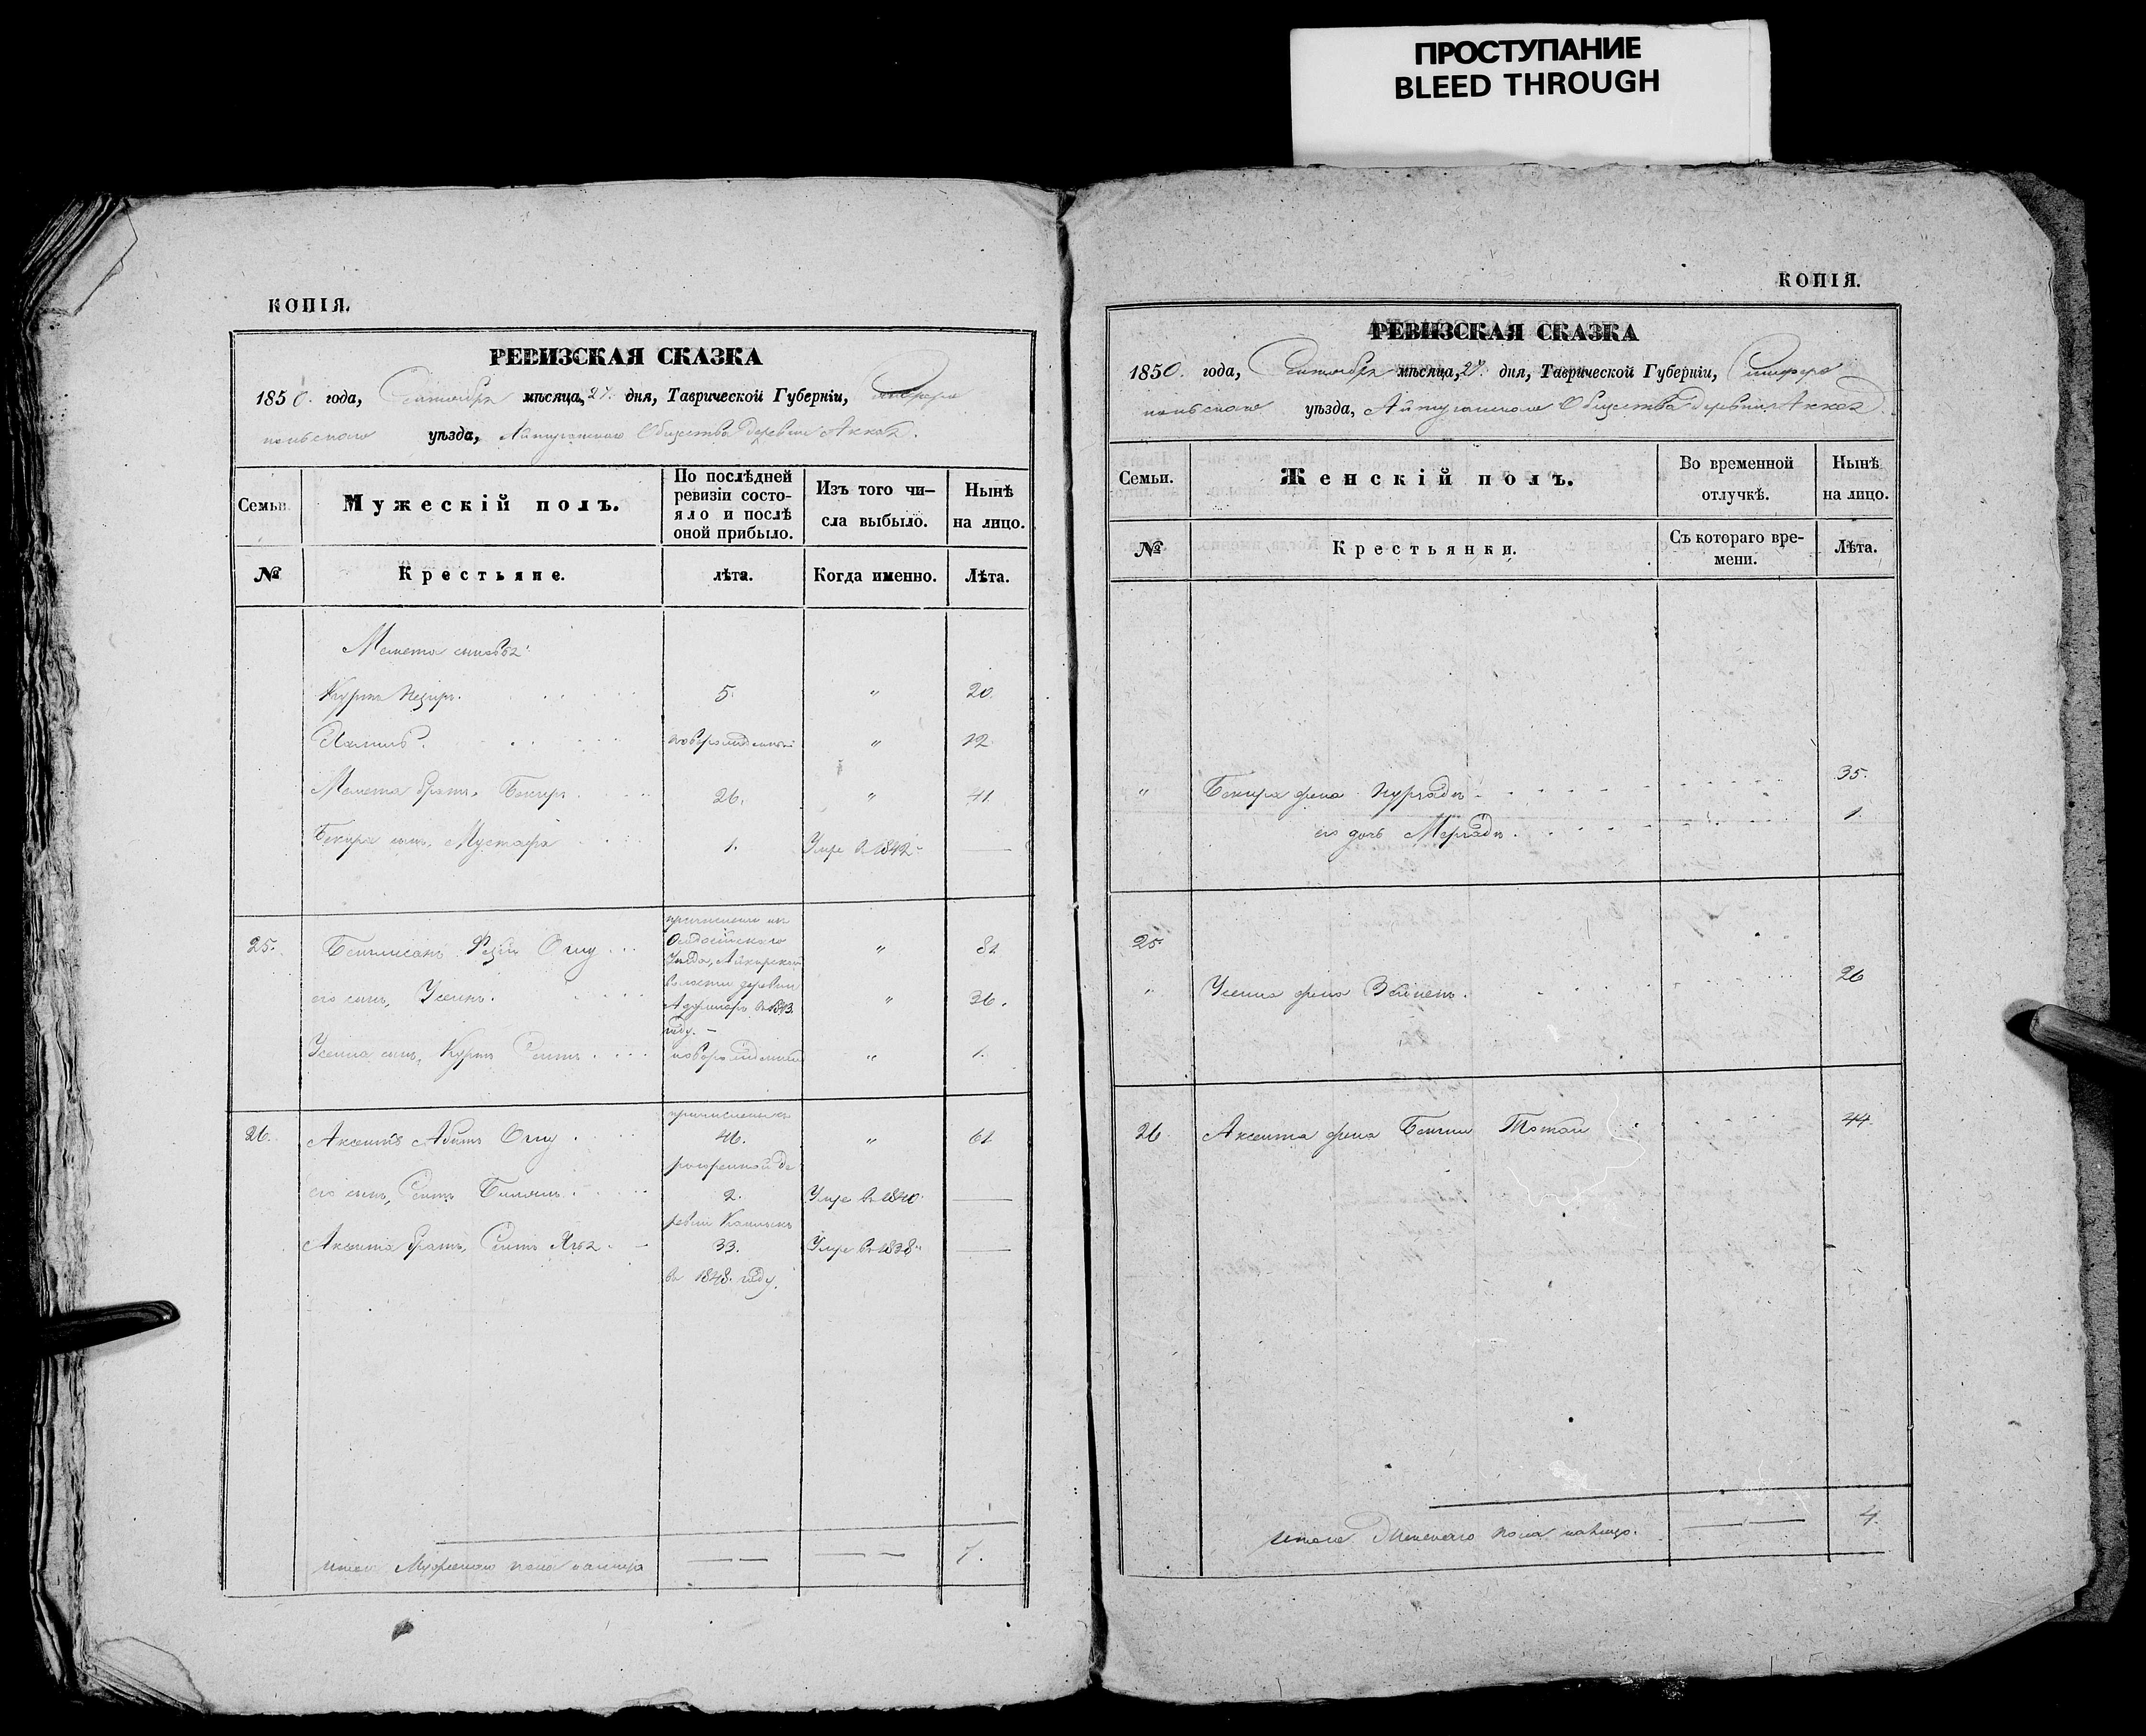 ПРОСТУПАНИЕ
BLEED THROUGH
КОПІЯ.
РЕВИЗСКАЯ СКАЗКА
1850. года, Сентября мѣсяца, 27. дня, Таврической Губерніи, Симферо
польскаго уѣзда, Айтуганскаго Общества деревни Аккоз.
Семьи. Мужескій полъ. По послѣдней ревизіи состояло и послѣ оной прибыло. Изъ того числа выбыло. Нынѣ на лицо.
№ Крестьяне. лѣта. Когда именно. Лѣта.
Мемета сыновья:
Куртъ 5. " 20.
новорожденный " 12.
Мемета братъ, Бекиръ 26. " 41.
Бекира сынъ, Мустафа 1. Умре въ 1842. —
25. Огу " 81
его сынъ, Усеинъ. " 36.
причисленъ изъ
Феодосійскаго
Уѣзда,
волости деревни
въ 1843.
году. —
Усеина сынъ, Куртъ Сеитъ новорожденный " 1.
причисленъ
26. Аксеитъ Абитъ Огу 46. " 61
его сынъ, Сеитъ Билялъ 2. Умре въ 1840. —
Аксеита братъ, Сеитъ Ягъя 33. Умре въ 1838. —
въ 1848. году.
Итого Мужескаго пола налицо — — — — 7.
КОПІЯ.
РЕВИЗСКАЯ СКАЗКА
1850. года, Сентября мѣсяца, 27. дня, Таврической Губерніи, Симферо
польскаго уѣзда, Айтуганскаго Общества деревни Аккоз.
Семьи. Женскій полъ. Во временной отлучкѣ. Нынѣ на лицо.
№ Крестьянки. Съ котораго времени. Лѣта.
" Бекира жена 35.
его дочь 1.
25.
" Усеина жена Зейнепъ. 26
26. Аксеита жена Тотай 44.
Итого Женскаго пола налицо. — — 4.